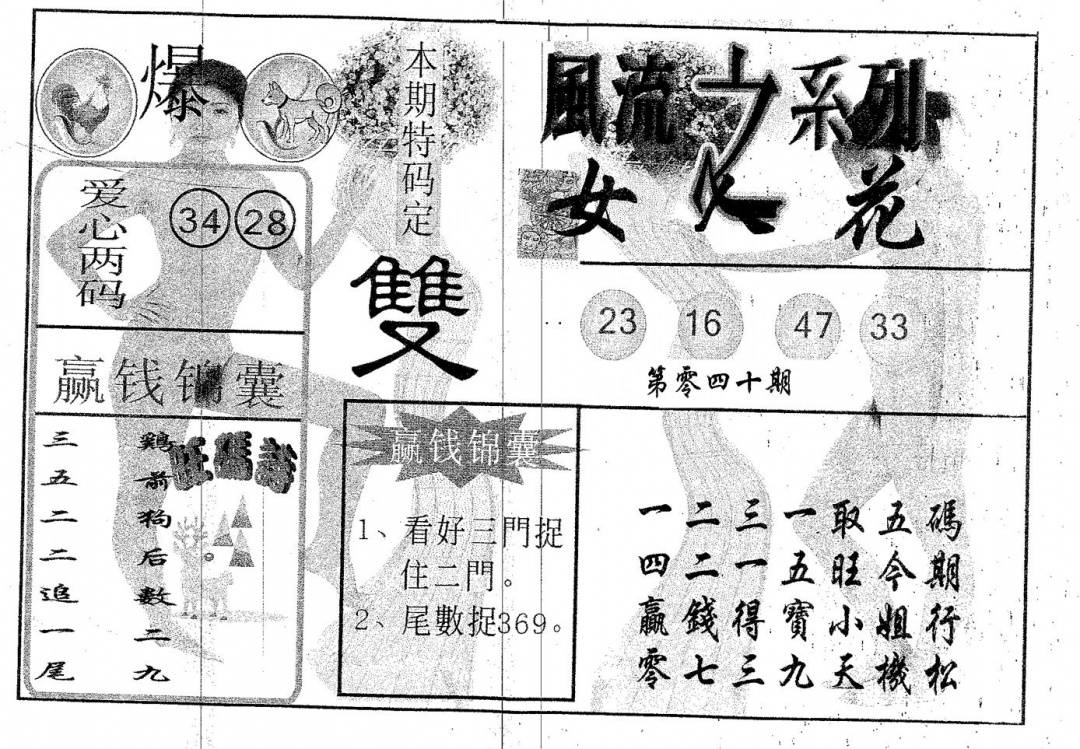 爆
爱心两码
34 28
赢钱锦囊
三五二二追一尾
鷄前狗后數二九
本期特码定
雙
赢钱锦囊
1、看好三門捉
住二門。
2、尾數捉369。
風流之系列
女 花
23 16 47 33
第零四十期
一二三一取五碼
四二一五旺今期
赢錢得寶小姐行
零七三九天機松